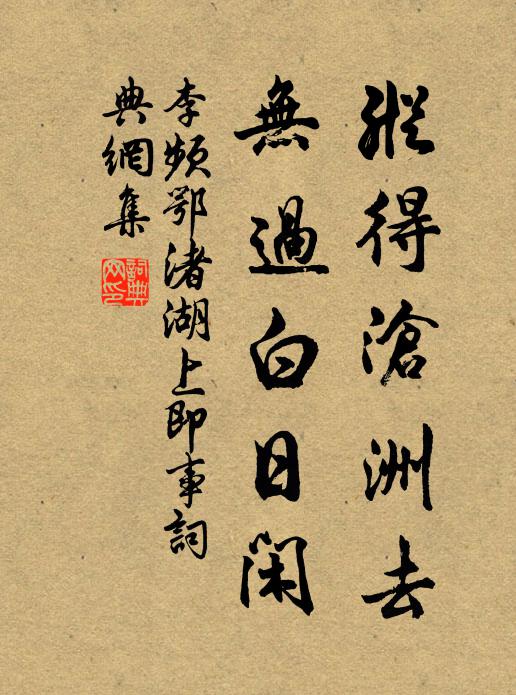 縱得滄洲去
無過白日閑
李頻鄂渚湖上即事詞
典網集
詞典網印